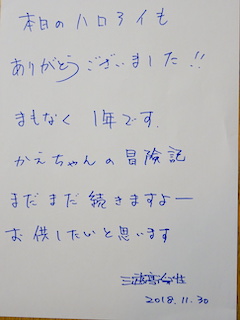 本日のハロアイも
ありがとうございました!!
まもなく 1年です.
かえちゃんの冒険記
まだまだ続きますよー
お供したいと思います
2018.11.30